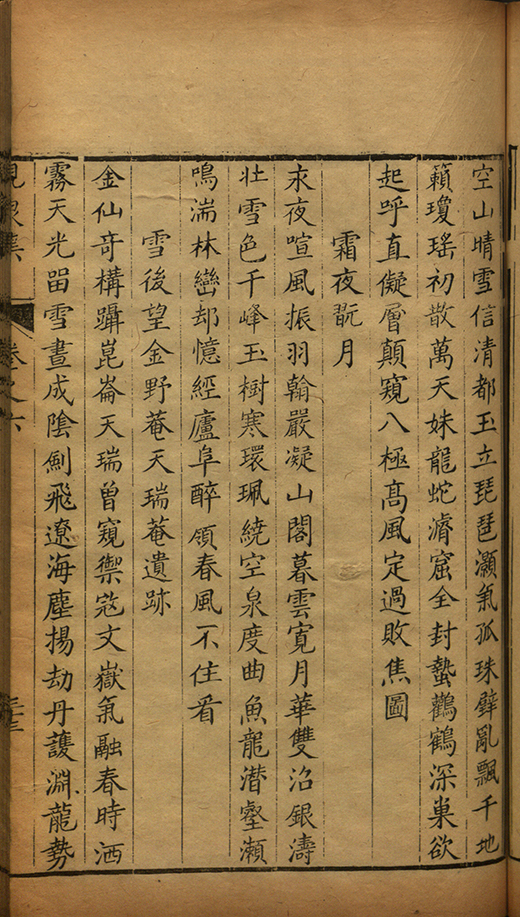 空山晴雪信清都玉立琵琶灝氣孤珠壁亂飄千地
籟瓊瑤初散萬天姝龍蛇濬窟全封蟄鸛鶴深巢欲
起呼直儗層顛窺八極高風定過敗焦圖
霜夜翫月
永夜喧風振羽翰嚴凝山閣暮雲寬月華雙沿銀濤
壯雪色千峰玉樹寒環珮繞空泉度曲魚龍潛壑瀨
鳴湍林巒却憶經廬阜醉領春風不住看
雪後望金野菴天瑞菴遺跡
金仙奇構躡崑崙天瑞曾窺禦寇文嶽氣融春時洒
霧天光畱雪晝成陰劍飛遼海塵揚劫丹護淵龍勢
卷之六